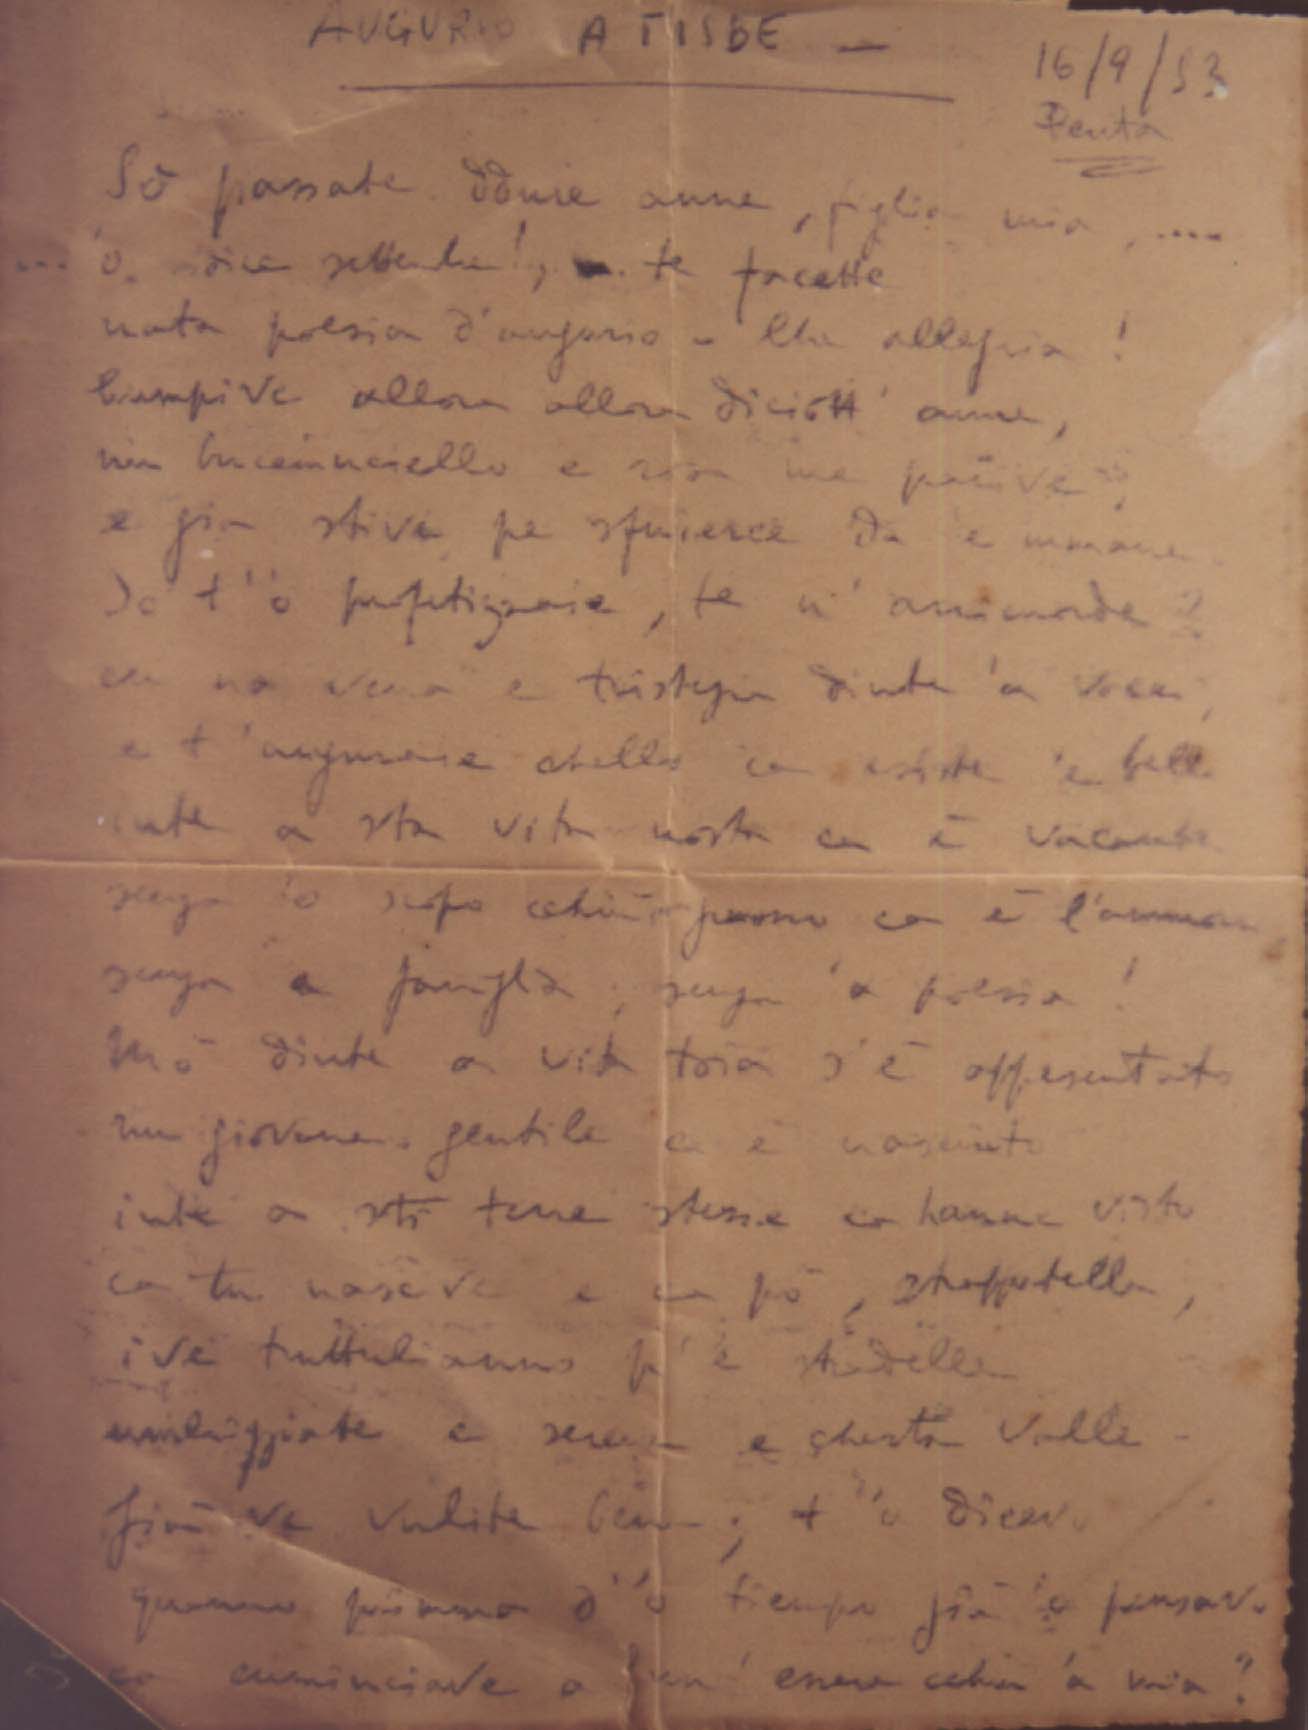 AUGURIO A TISBE —
16/9/53
Penta
Sò passate dduie anne, figlia mia, ....
... 'o dice settembre!, te facette
nata poesia d'augurio - Che allegria!
Cumpive allora allora diciott' anne,
nu bucciuciello e rosa me parive
e già stive pe sfuierce da 'e mmane.
Io t' 'o prufetizzaie, te n' arricuorde?
cu na vena e tristezza dinte 'a voce,
e t'auguraie chello ca esiste 'e bello
inte a sta vita nosta ca è vacante
senza 'o scopo cchiù ca è l'ammore
senza a famiglia, senza 'a poesia!
Mò dinte a vita toia s'è appresentato
nu giovane gentile ca è nasciuto
inte a sti terre stesse ca hanne visto
ca tu nascive e ca pò, strappatella,
ive truttulianno p' 'e stradelle
umbriggiate e serene e chesta valle -
Già ve vulite bene; t' 'o dicevo
quanno primma d' 'o tiempo già 'o penzavo
ca cuminciave a nun essere cchiù 'a mia?